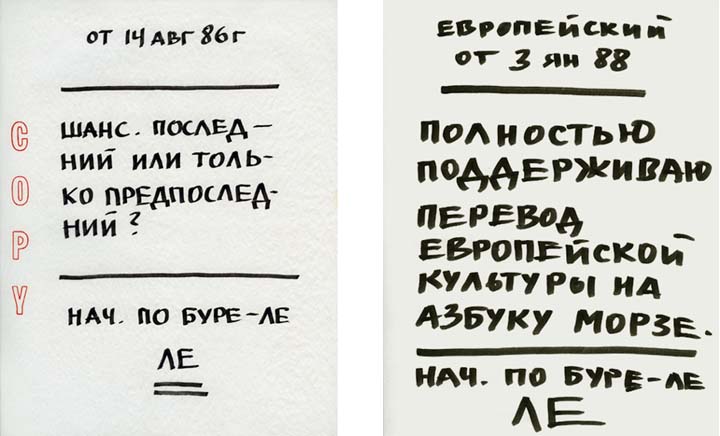 от 14 авг 86г
COPY
ШАНС. ПОСЛЕД-
НИЙ ИЛИ ТОЛЬ-
КО ПРЕДПОСЛЕД-
НИЙ?
НАЧ. ПО БУРЕ-ЛЕ
ЛЕ
ЕВРОПЕЙСКИЙ
от 3 ян 88
ПОЛНОСТЬЮ
ПОДДЕРЖИВАЮ
ПЕРЕВОД
ЕВРОПЕЙСКОЙ
КУЛЬТУРЫ НА
АЗБУКУ МОРЗЕ.
НАЧ. ПО БУРЕ-ЛЕ
ЛЕ